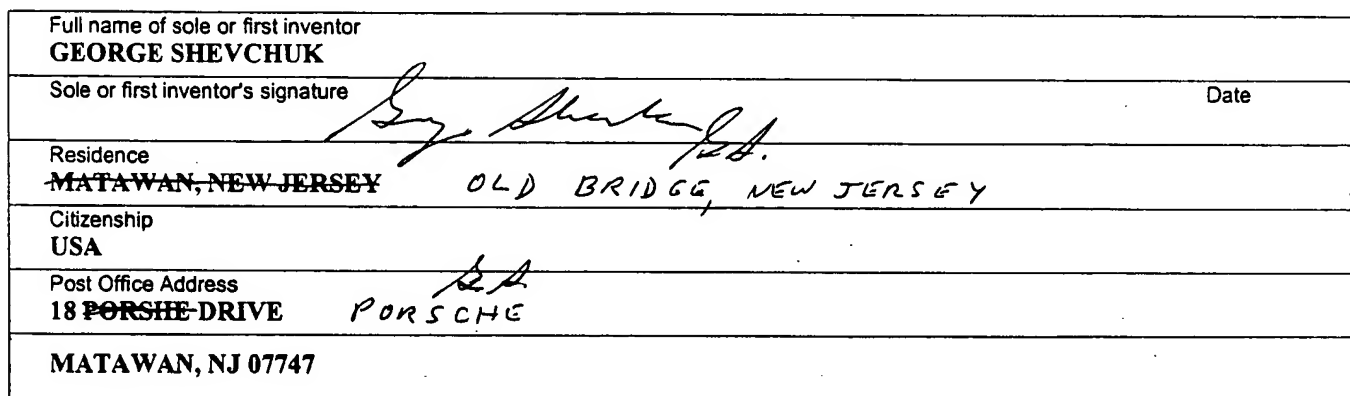 Full name of sole or first inventor
GEORGE SHEVCHUK
Sole or first inventor's signature Date
Residence
MATAWAN, NEW JERSEY OLD BRIDGE, NEW JERSEY
Citizenship
USA
Post Office Address G.S.
18 PORSHE DRIVE PORSCHE
MATAWAN, NJ 07747